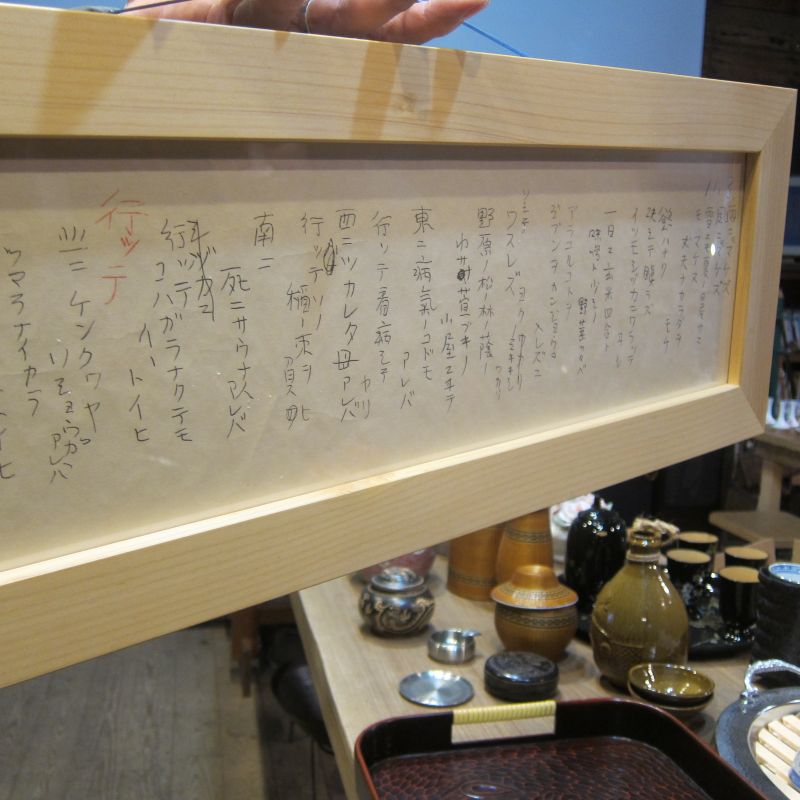 雨ニモマケズ
風ニモマケズ
雪ニモ夏ノ暑サニモ
マケヌ
丈夫ナカラダヲ
モチ
慾ハナク
決シテ瞋ラズ
イツモシヅカニワラッテ
ヰル
一日ニ玄米四合ト
味噌ト少シノ
野菜ヲタベ
アラユルコトヲ
ジブンヲカンジョウニ
入レズニ
ヨクミキキシ
ワカリ
ソシテ
ワスレズ
野原ノ松ノ林ノ蔭ノ
小サナ萓ブキノ
小屋ニヰテ
東ニ病氣ノコドモ
アレバ
行ッテ看病シテ
ヤリ
西ニツカレタ母アレバ
行ッテソノ
稲ノ束ヲ
負ヒ
南ニ
死ニサウナ人アレバ
行ッテ
コハガラナクテモ
イヽトイヒ
行ッテ
北ニケンクヮヤ
ソショウガアレバ
ツマラナイカラ